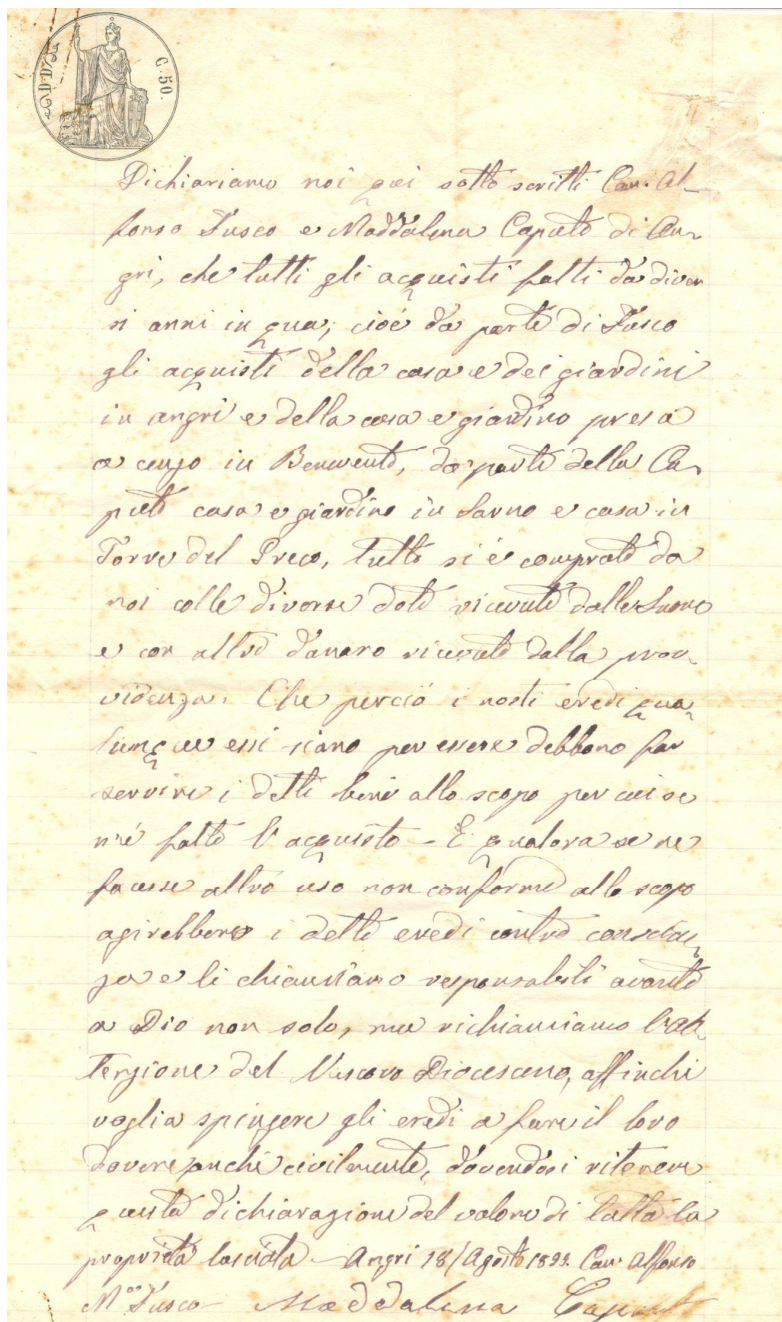 C. 50.
Dichiariamo noi qui sotto scritti Can. Al-
fonso Fusco e Maddalena Caputo di An-
gri, che tutti gli acquisti fatti da diver
si anni in qua, cioè da parte di Fusco
gli acquisti della casa e dei giardini
in angri e della casa e giardino presa
a censo in Benevento, da parte della Ca-
puto casa e giardino in Sarno e casa in
Torre del Greco, tutto si è comprato da
noi colle diverse doti ricevute dalle Suore
e con altro danaro ricevuto dalla prov-
videnza. Che perciò i nosti eredi qua-
lunque essi siano per essere debbono far
servire i detti beni allo scopo per cui se
n'è fatto l'acquisto - E qualora se ne
facesse altro uso non conforme allo scopo
agirebbero i detti eredi contro coscien-
za e li chiamiamo responsabili avanti
a Dio non solo, ma richiamiamo l'at-
tenzione del Vescovo Diocesano, affinchi
voglia spingere gli eredi a fare il loro
dovere anche civilmente, dovendosi ritenere
questa dichiarazione del valore di tutta la
proprietà lasciata - Angri 18/Agosto Can. Alfonso
M.a Fusco Maddalena Caputo